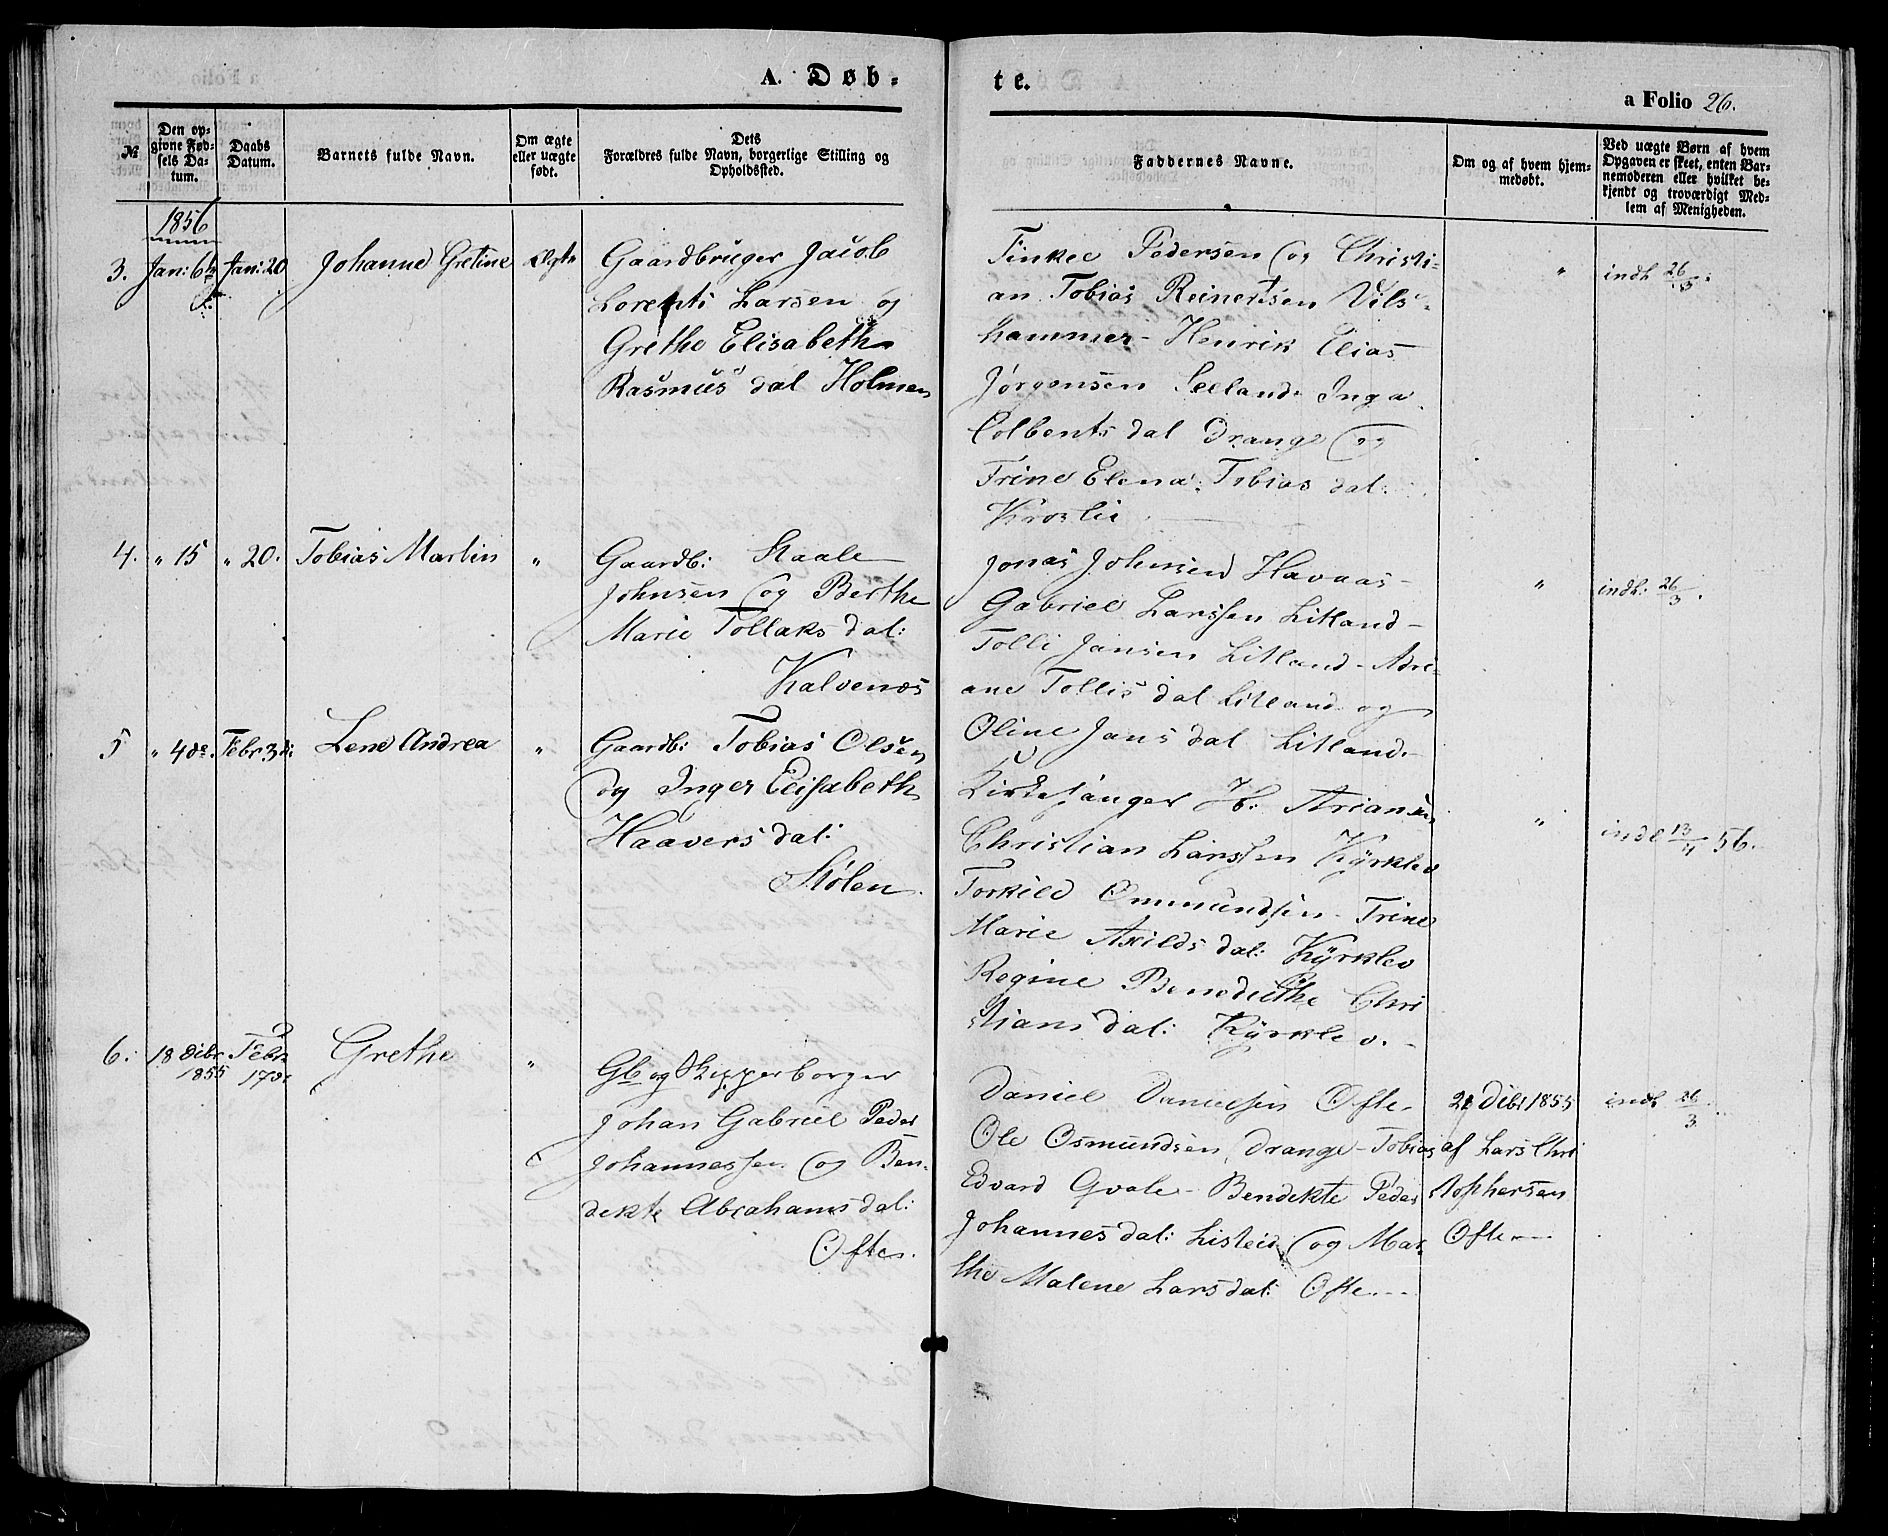 A. Døb-
te.
a Folio 26.
№
Den op-
givne Fød-
sels Da-
tum.
Daabs
Datum.
Barnets fulde Navn.
Om ægte
eller uægte
født.
Dets
Forældres fulde Navn, borgerlige Stilling og
Opholdssted.
Faddernes Navne.
Om og af hvem hjem-
medøbt.
Ved uægte Børn af hvem
Opgaven er skeet, enten Bar-
nemoderen eller hvilket be-
kjendt og troværdigt Med-
lem af Menigheden.
1856
3. Jan: 6 Jan: 20 Johanne Gretine Ægte
Gaardbruger Jacob
Lorents Larsen og
Grethe Elisabeth
Rasmus dal Holmen
Finkel Pedersen og Christi-
an Tobias Reinertsen Vils-
hammer - Henrik Elias
Jørgensen Seeland Inga
Colbents dal Drange og
Trine Elena Tobias dal:
Kroslie
" indl 26/3.
4. " 15 " 20. Tobias Martin "
Gaardb: Staale
Johnsen og Berthe
Marie Tollaks dal:
Kalvenæs
Jonas Johnsen Havaas -
Gabriel Larssen Litland -
Tolli Jansen Litland - Adri-
ane Tollis dal Litland og
Oline Jans dal Litland -
" indl: 26/3.
5 " 4de. Febr: 3di Lene Andrea "
Gaardb: Tobias Olsen
og Inger Elisabeth
Haavers dal:
Stølen.
Kirkesanger H: Ariansen
Christian Larssen Kÿrklev
Torkild Ommundsen - Trine
Marie Axilds dal: Kÿrklev
Regine Benedicthe Chri
stians dal: Kÿrklev. -
" indl 13/4 56.
6. 18 Decbr 1855 Febr 17de Grethe "
Gb og Skipperborger
Johan Gabriel Peder
Johannessen og Ben-
dekte Abrahams dal:
Ofte.
Daniel Danielsen Ofte -
Ole Osmundsen Drange - Tobias
Edvard Gvale - Bendekte Peder
Johannes dal: Listeid og Mar-
the Malene Lars dal: Ofte. --
21 Decbr 1855
af Lars Chri
stophersen
Ofte --
indl 26/3